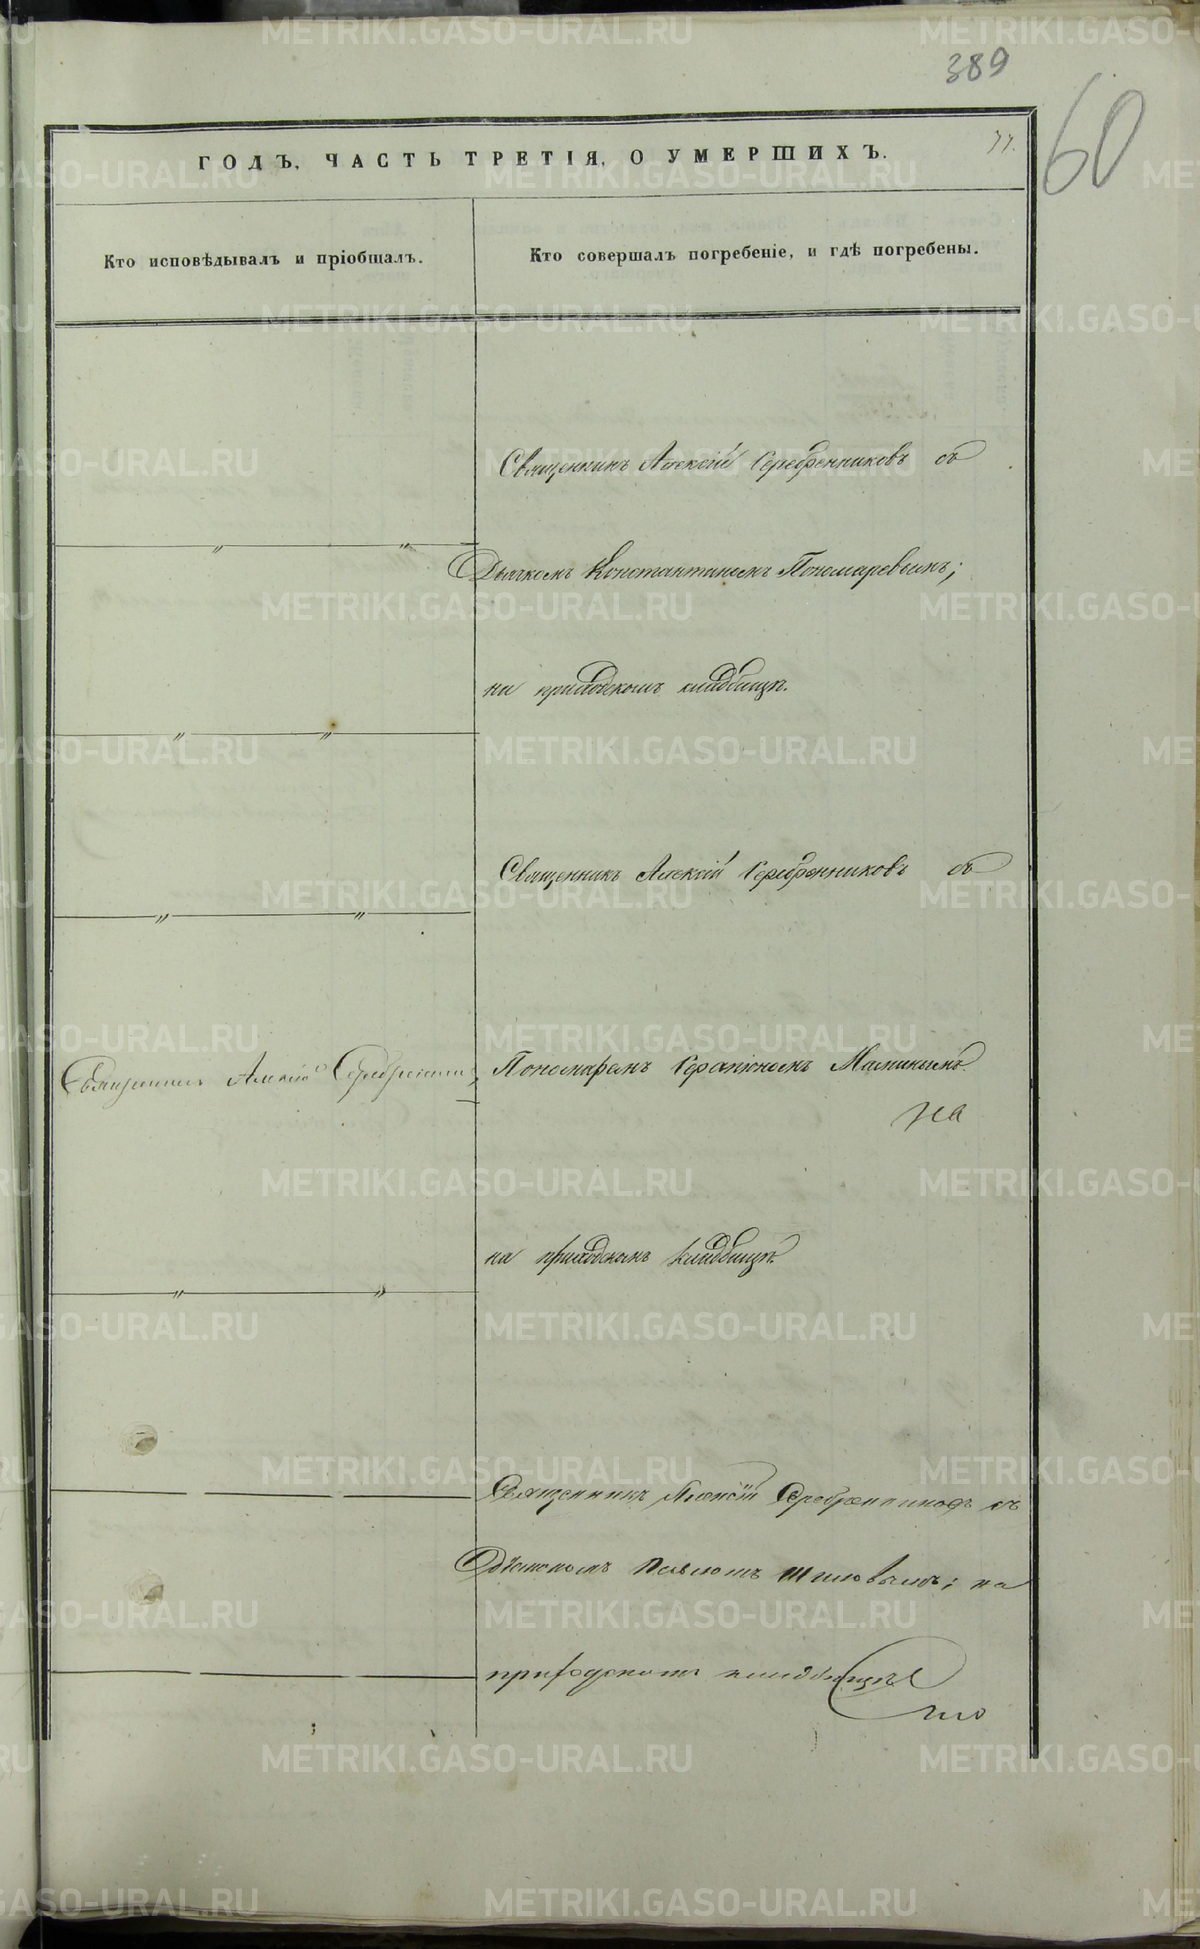 389
60
77.
ГОДЪ, ЧАСТЬ ТРЕТІЯ, О УМЕРШИХЪ.
Кто исповѣдывалъ и пріобщалъ.
Кто совершалъ погребеніе, и гдѣ погребены.
Священникъ Алексій Серебренниковъ съ
Дьячкомъ Константиномъ Пономаревымъ;
на приходскомъ кладбищѣ.
Священникъ Алексій Серебренниковъ съ
Священникъ Алексій
Пономаремъ Серапіономъ Маминымъ
на
на приходскомъ кладбищѣ.
Священникъ Алексій Серебренниковъ съ
Діакономъ Павломъ Шиловымъ; на
приходскомъ кладбищѣ
METRIKI.GASO-URAL.RU